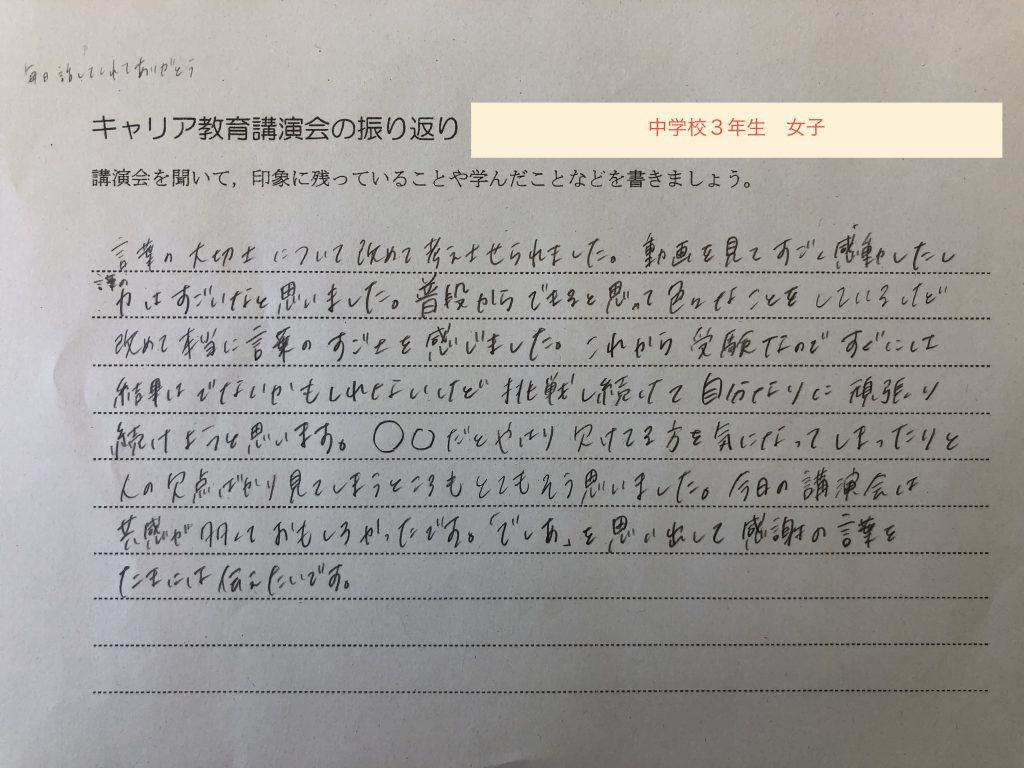 毎日話してくれてありがとう
キャリア教育講演会の振り返り
中学校３年生 女子
講演会を聞いて，印象に残っていることや学んだことなどを書きましょう。
言葉の大切さについて改めて考えさせられました。動画を見てすごく感動したし
言葉の力はすごいなと思いました。普段からできると思って色々なことをしているけど
改めて本当に言葉のすごさを感じました。これから受験なのですぐには
結果はでないかもしれないけど挑戦し続けて自分なりに頑張り
続けようと思います。〇〇だとやはり欠けてる方を気になってしまったりと
人の欠点ばかり見てしまうところもとてもそう思いました。今日の講演会は
共感が多くておもしろかったです。「でしあ」を思い出して感謝の言葉を
たまには伝えたいです。